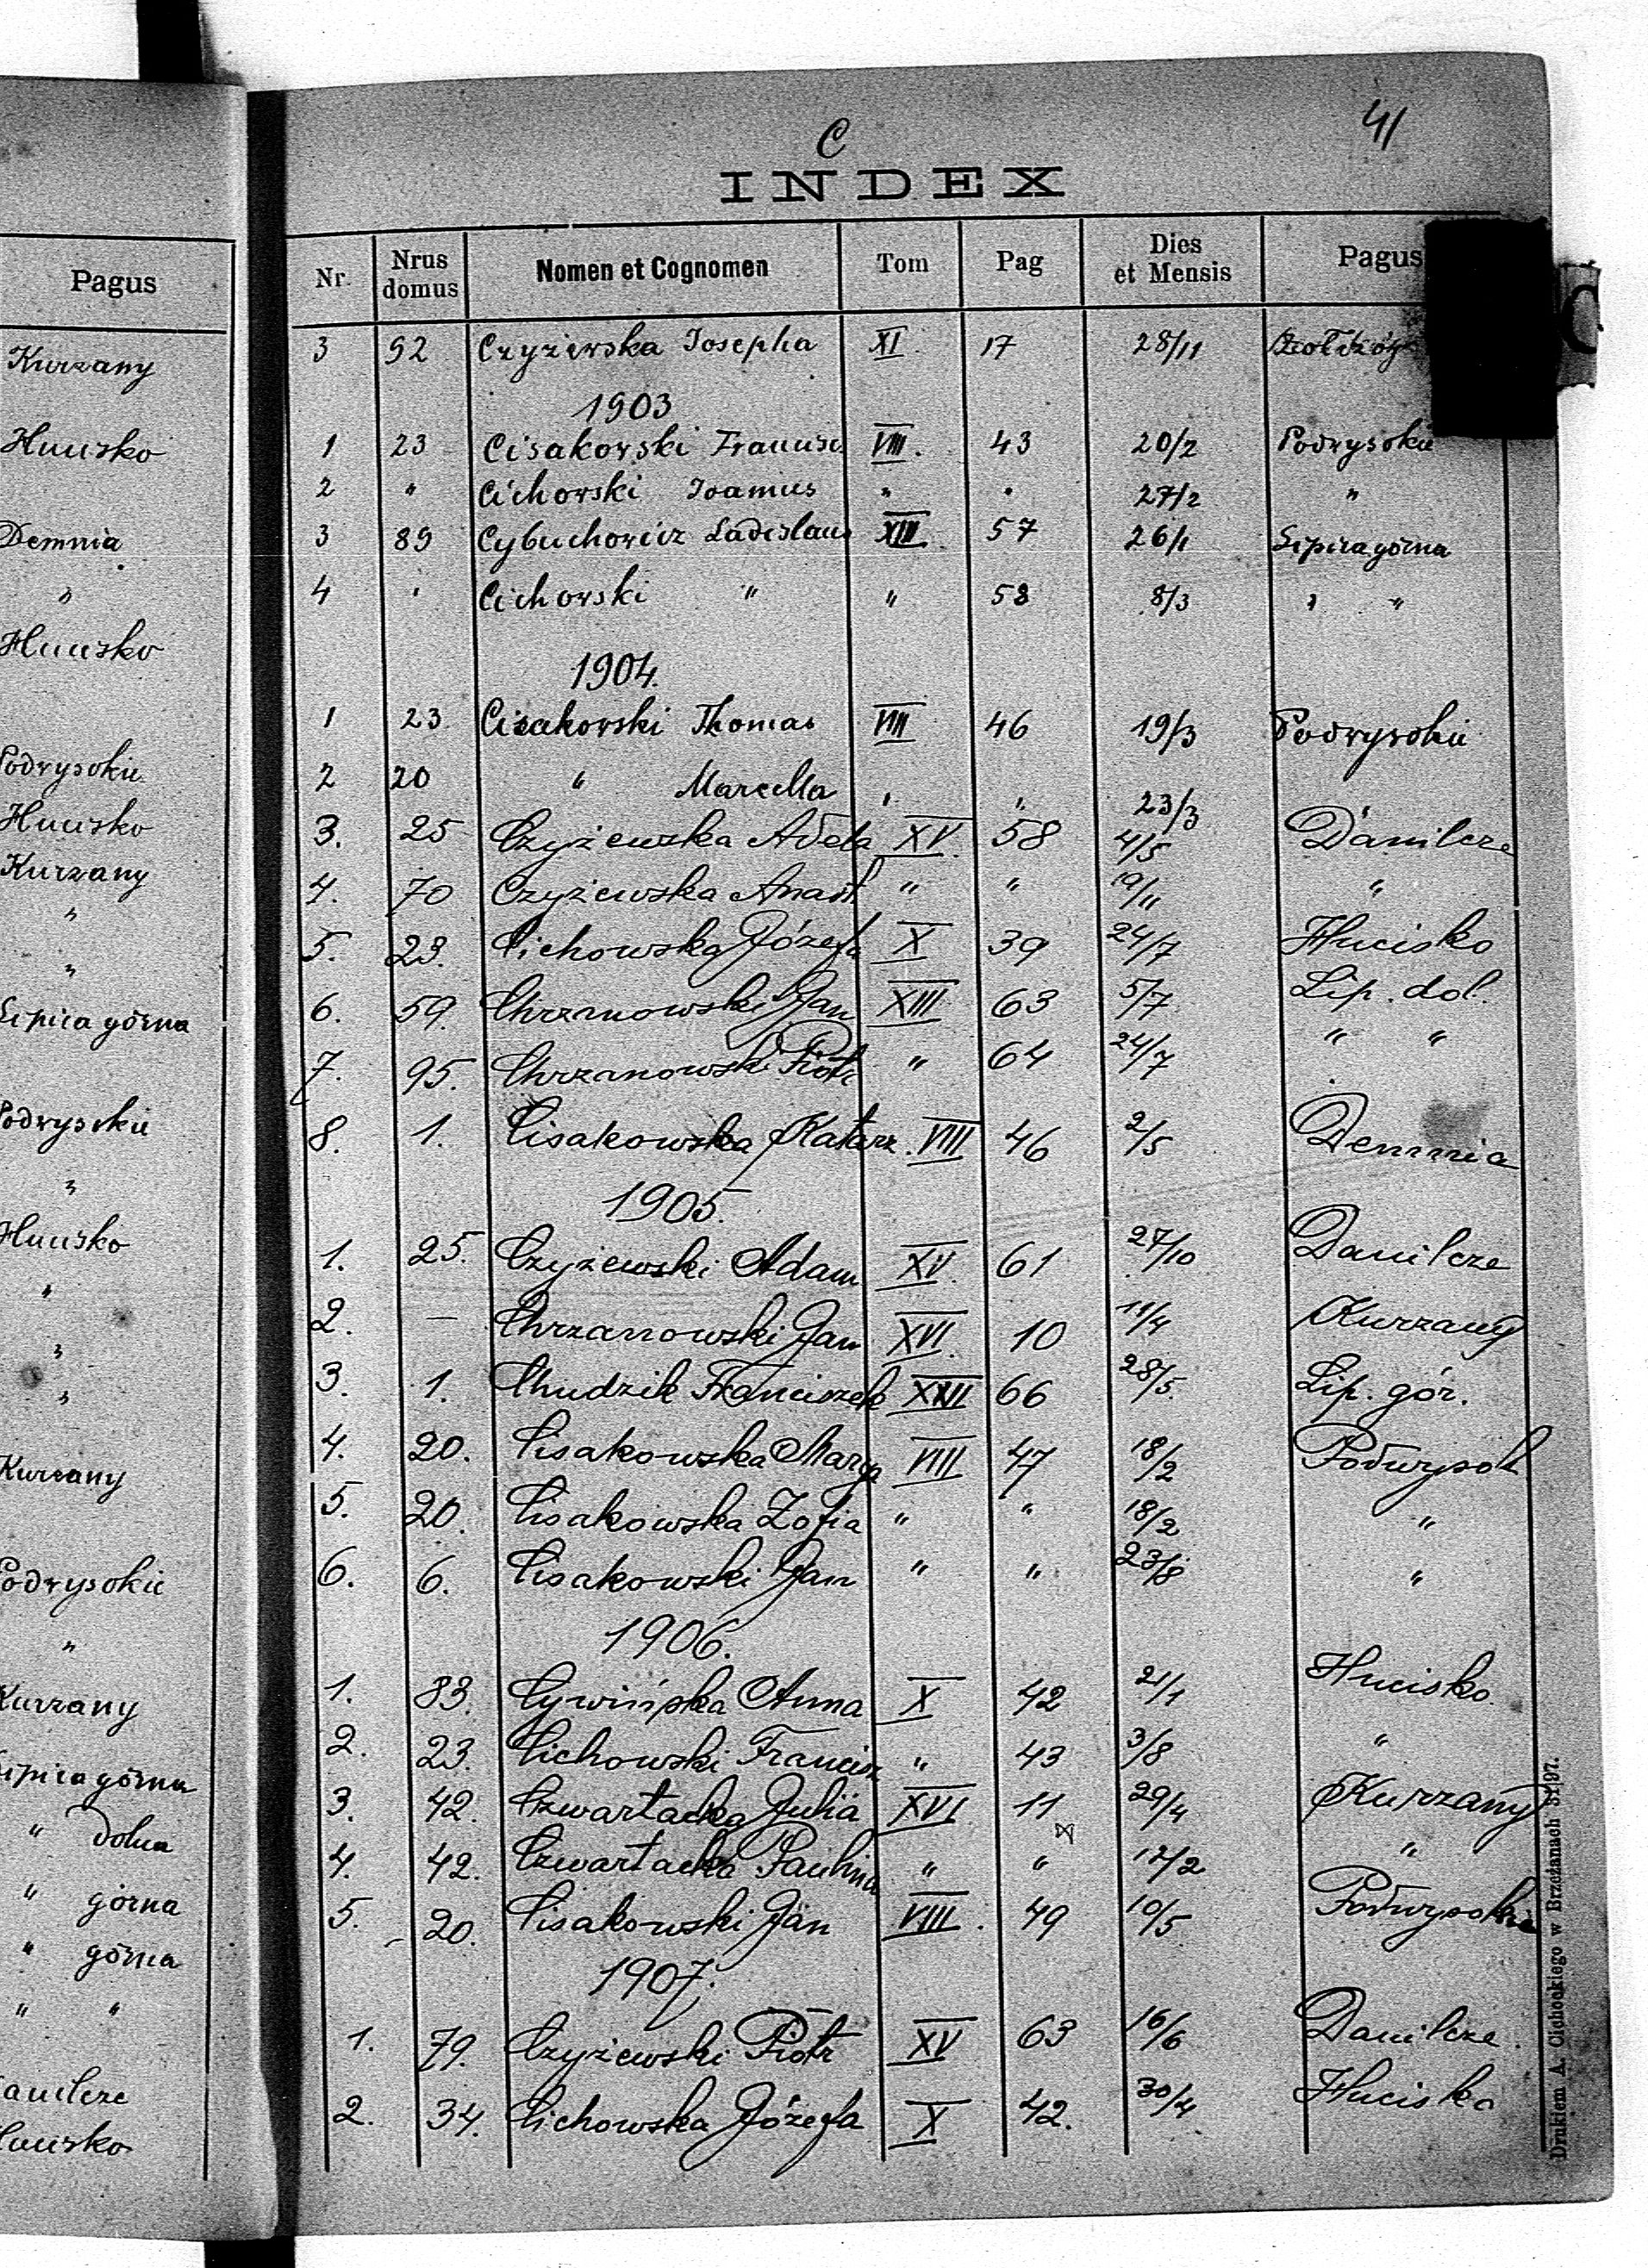 Pagus
Kurzany
Hucisko
Demnia
"
Hucisko
Podwysokie
Hucisko
Kurzany
"
"
Lipica górna
Podwysokie
"
Hucisko
"
"
"
Kurzany
Podwysokie
"
Kurzany
Lipica górna
" dolna
" górna
" górna
" "
Danilcze
Hucisko
C
41
INDEX
Nr. Nrus domus Nomen et Cognomen Tom Pag Dies et Mensis Pagus
3 92 Czyżewska Josepha XI. 17 28/11
1903
1 23 Cisakowski Francisc VIII. 43 20/2 Podwysokie
2 " Cichowski Joannes " " 27/2 "
3 89 Cybuchowicz Ladislaus XIII 57 26/1 Lipica górna
4 " Cichowski " " 58 8/3 " "
1904.
1 23 Cisakowski Thomas VIII 46 19/3 Podwysokie
2 20 " Marcella " " 23/3
3. 25 Czyżewska Adela XV. 58 4/5 Danilcze
4. 70 Czyżewska Anast " " 19/11 "
5. 23. Cichowska Józefa X 39 24/7 Hucisko
6. 59. Chrzanowski Jan XIII 63 5/7 Lip. dol.
7. 95. Chrzanowski Piotr " 64 24/7 " "
8. 1. Cisakowska Katarz. VIII 46 2/5 Demnia
1905.
1. 25. Czyżewski Adam XV. 61 27/10 Danilcze
2. — Chrzanowski Jan XVI. 10 11/4 Kurzany
3. 1. Chudzik Franciszek XIII 66 28/5. Lip. gór.
4. 20. Cisakowska Marya VIII 47 18/2 Podwysok
5. 20. Cisakowska Zofia " " 18/2 "
6. 6. Cisakowski Jan " " 23/8 "
1906.
1. 83. Cywińska Anna X 42 21/1 Hucisko
2. 23. Cichowski Francisz " 43 3/8 "
3. 42. Czwartacka Julia XVI 11 29/4 Kurzany
4. 42. Czwartacka Paulina " " 12/2 "
5. 20. Cisakowski Jan VIII. 49 10/5 Podwysokie
1907.
1. 79. Czyżewski Piotr XV 63 16/6 Danilcze.
2. 34. Cichowska Józefa X 42. 30/4 Hucisko
Drukiem A. Cichockiego w Brzeżanach 31|97.